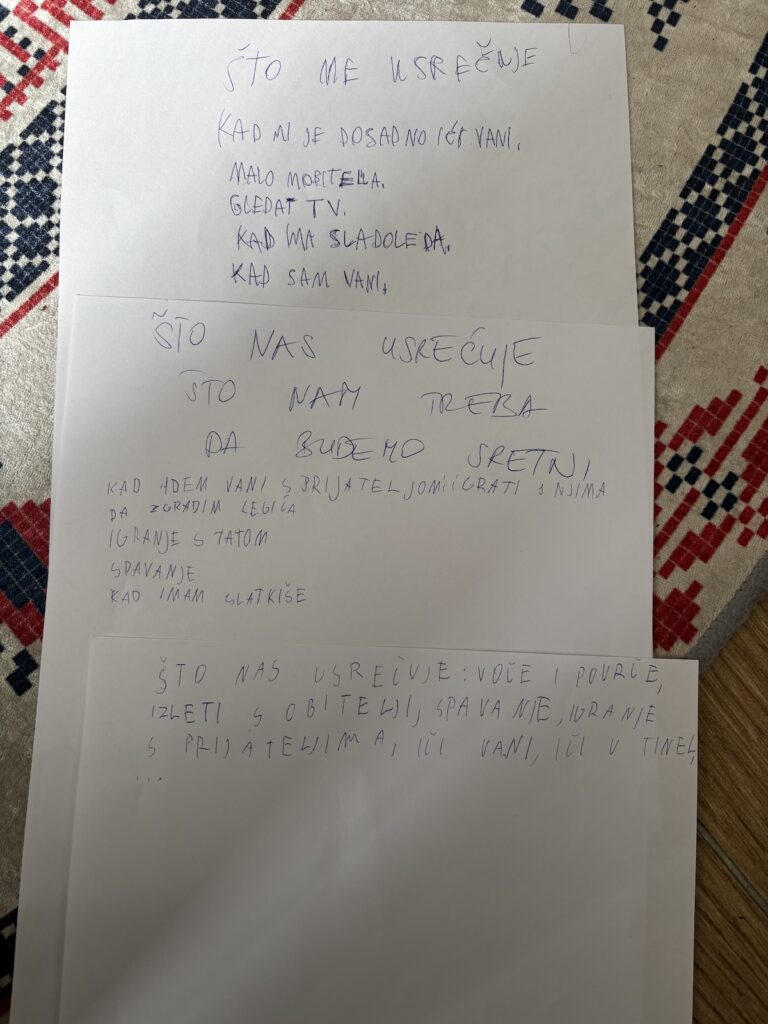 ŠTO ME USREČNJE
KAD MI JE DOSADNO IĆI VANI.
MALO MOBITELA.
GLEDAT TV.
KAD IMA SLADOLEDA.
KAD SAM VANI.
ŠTO NAS USREĆUJE
ŠTO NAM TREBA
DA BUDEMO SRETNI
KAD IDEM VANI S BRIJATELJOM I IGRATI S NJIMA
DA ZGRADIM LEGIĆA
IGRANJE S TATOM
SPAVANJE
KAD IMAM SLATKIŠE
ŠTO NAS USREĆUJE: VOČE I POVRČE,
IZLETI S OBITELJI, SPAVANJE, IGRANJE
S PRIJATELJIMA, IČI VANI, IČI U TINEL,
...